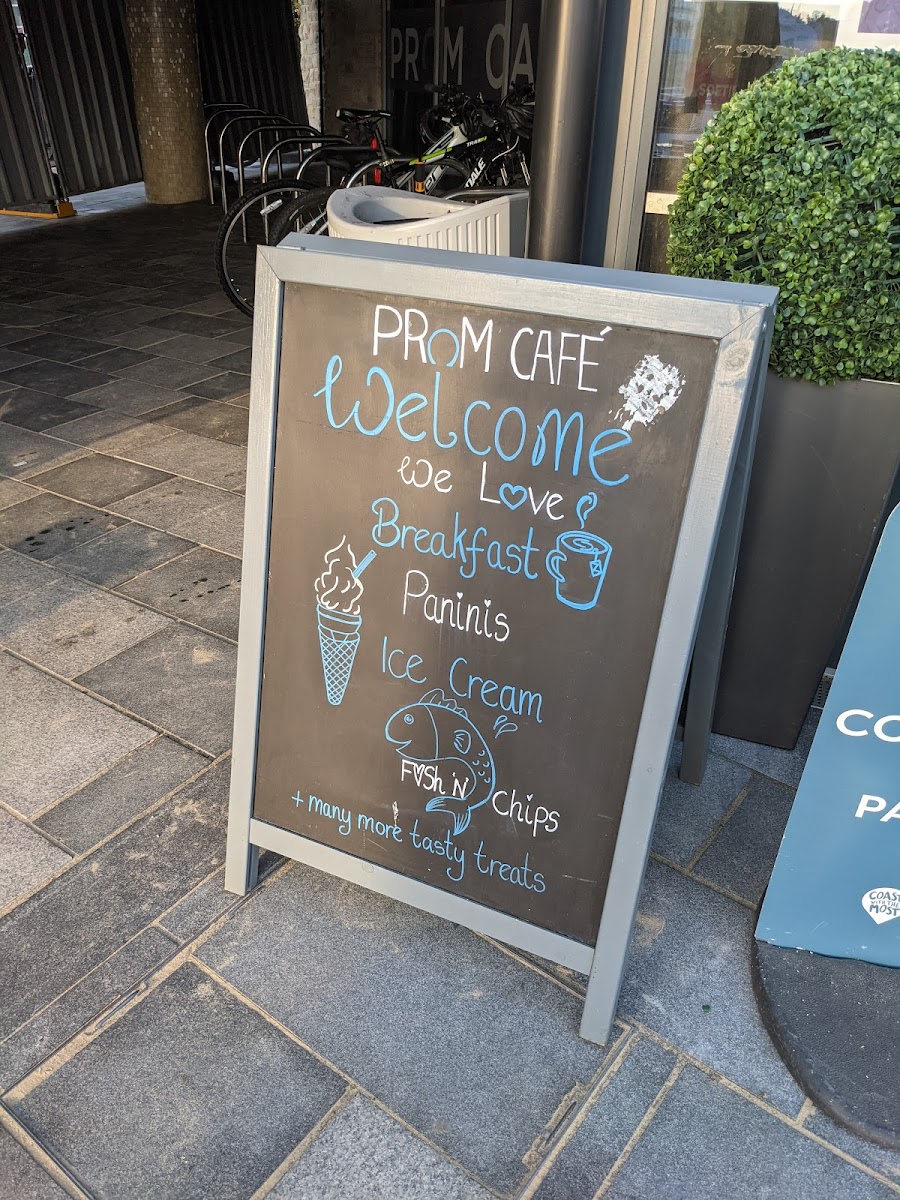 PROM CA
PROM CAFÉ
Welcome
We Love
Breakfast
Paninis
Ice Cream
Fish 'N'
Chips
+ many more tasty treats
CO
PA
COAST
WITH THE
MOST